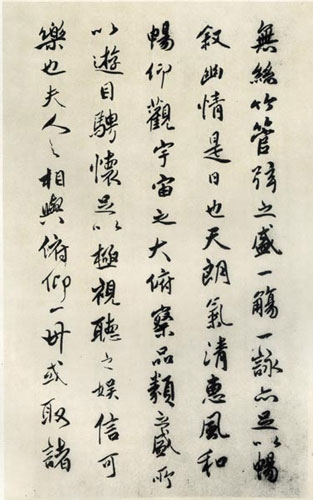 無絲竹管弦之盛一觴一詠亦足以暢
叙幽情是日也天朗氣清惠風和
暢仰觀宇宙之大俯察品類之盛所
以遊目騁懷足以極視聽之娛信可
樂也夫人之相與俯仰一世或取諸